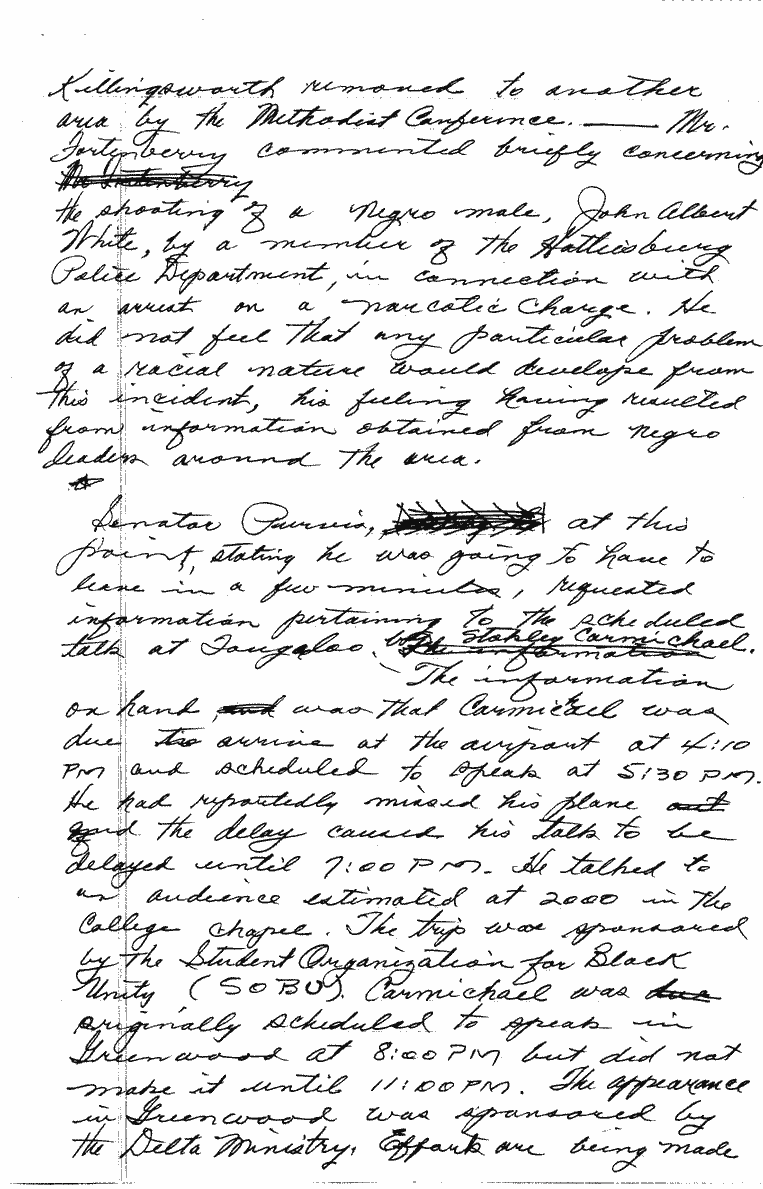 Killingsworth removed to another
area by the Methodist Conference. —— Mr.
Fortenberry commented briefly concerning
Mr Fortenberry
the shooting of a Negro male, John Albert
White, by a member of the Hattiesburg
Police Department, in connection with
an arrest on a narcotic charge. He
did not feel that any particular problem
of a racial nature would develope from
this incident, his feeling having resulted
from information obtained from negro
leaders around the area.
Senator Purvis, at this
point, stating he was going to have to
leave in a few minutes, requested
information pertaining to the scheduled
talk at Tougaloo by Stokley Carmichael.
The information
The information
on hand, and was that Carmichael was
due to arrive at the airport at 4:10
PM and scheduled to speak at 5:30 PM.
He had reportedly missed his plane
and the delay caused his talk to be
delayed until 7:00 PM. He talked to
an audience estimated at 2000 in the
College chapel. The trip was sponsored
by the Student Organization for Black
Unity (SOBU). Carmichael was due
originally scheduled to speak in
Greenwood at 8:00 PM but did not
make it until 11:00 PM. The appearance
in Greenwood was sponsored by
the Delta Ministry. Efforts are being made